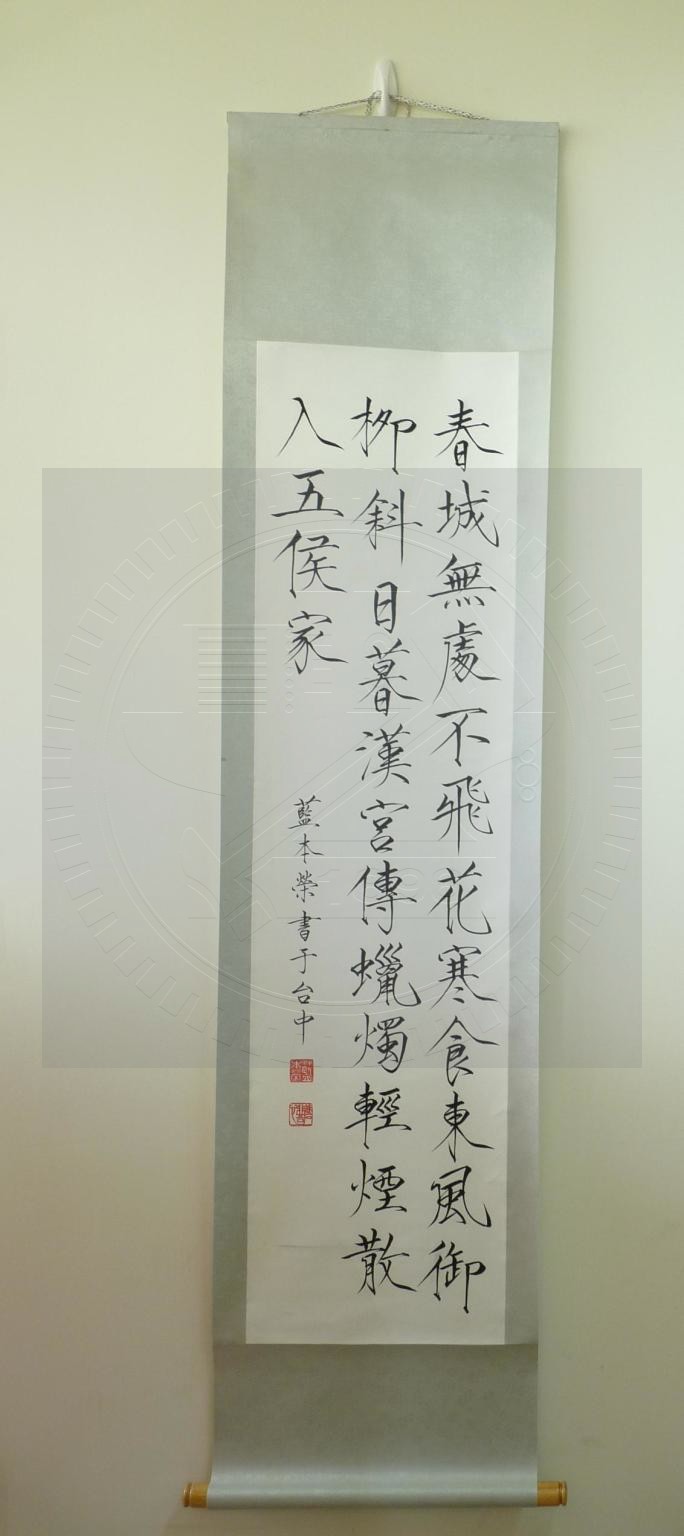 春城無處不飛花寒食東風御
柳斜日暮漢宮傳蠟燭輕煙散
入五侯家
藍本榮書于台中